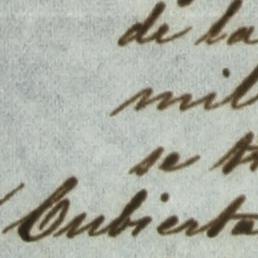 de la
mil
se
Cubierta